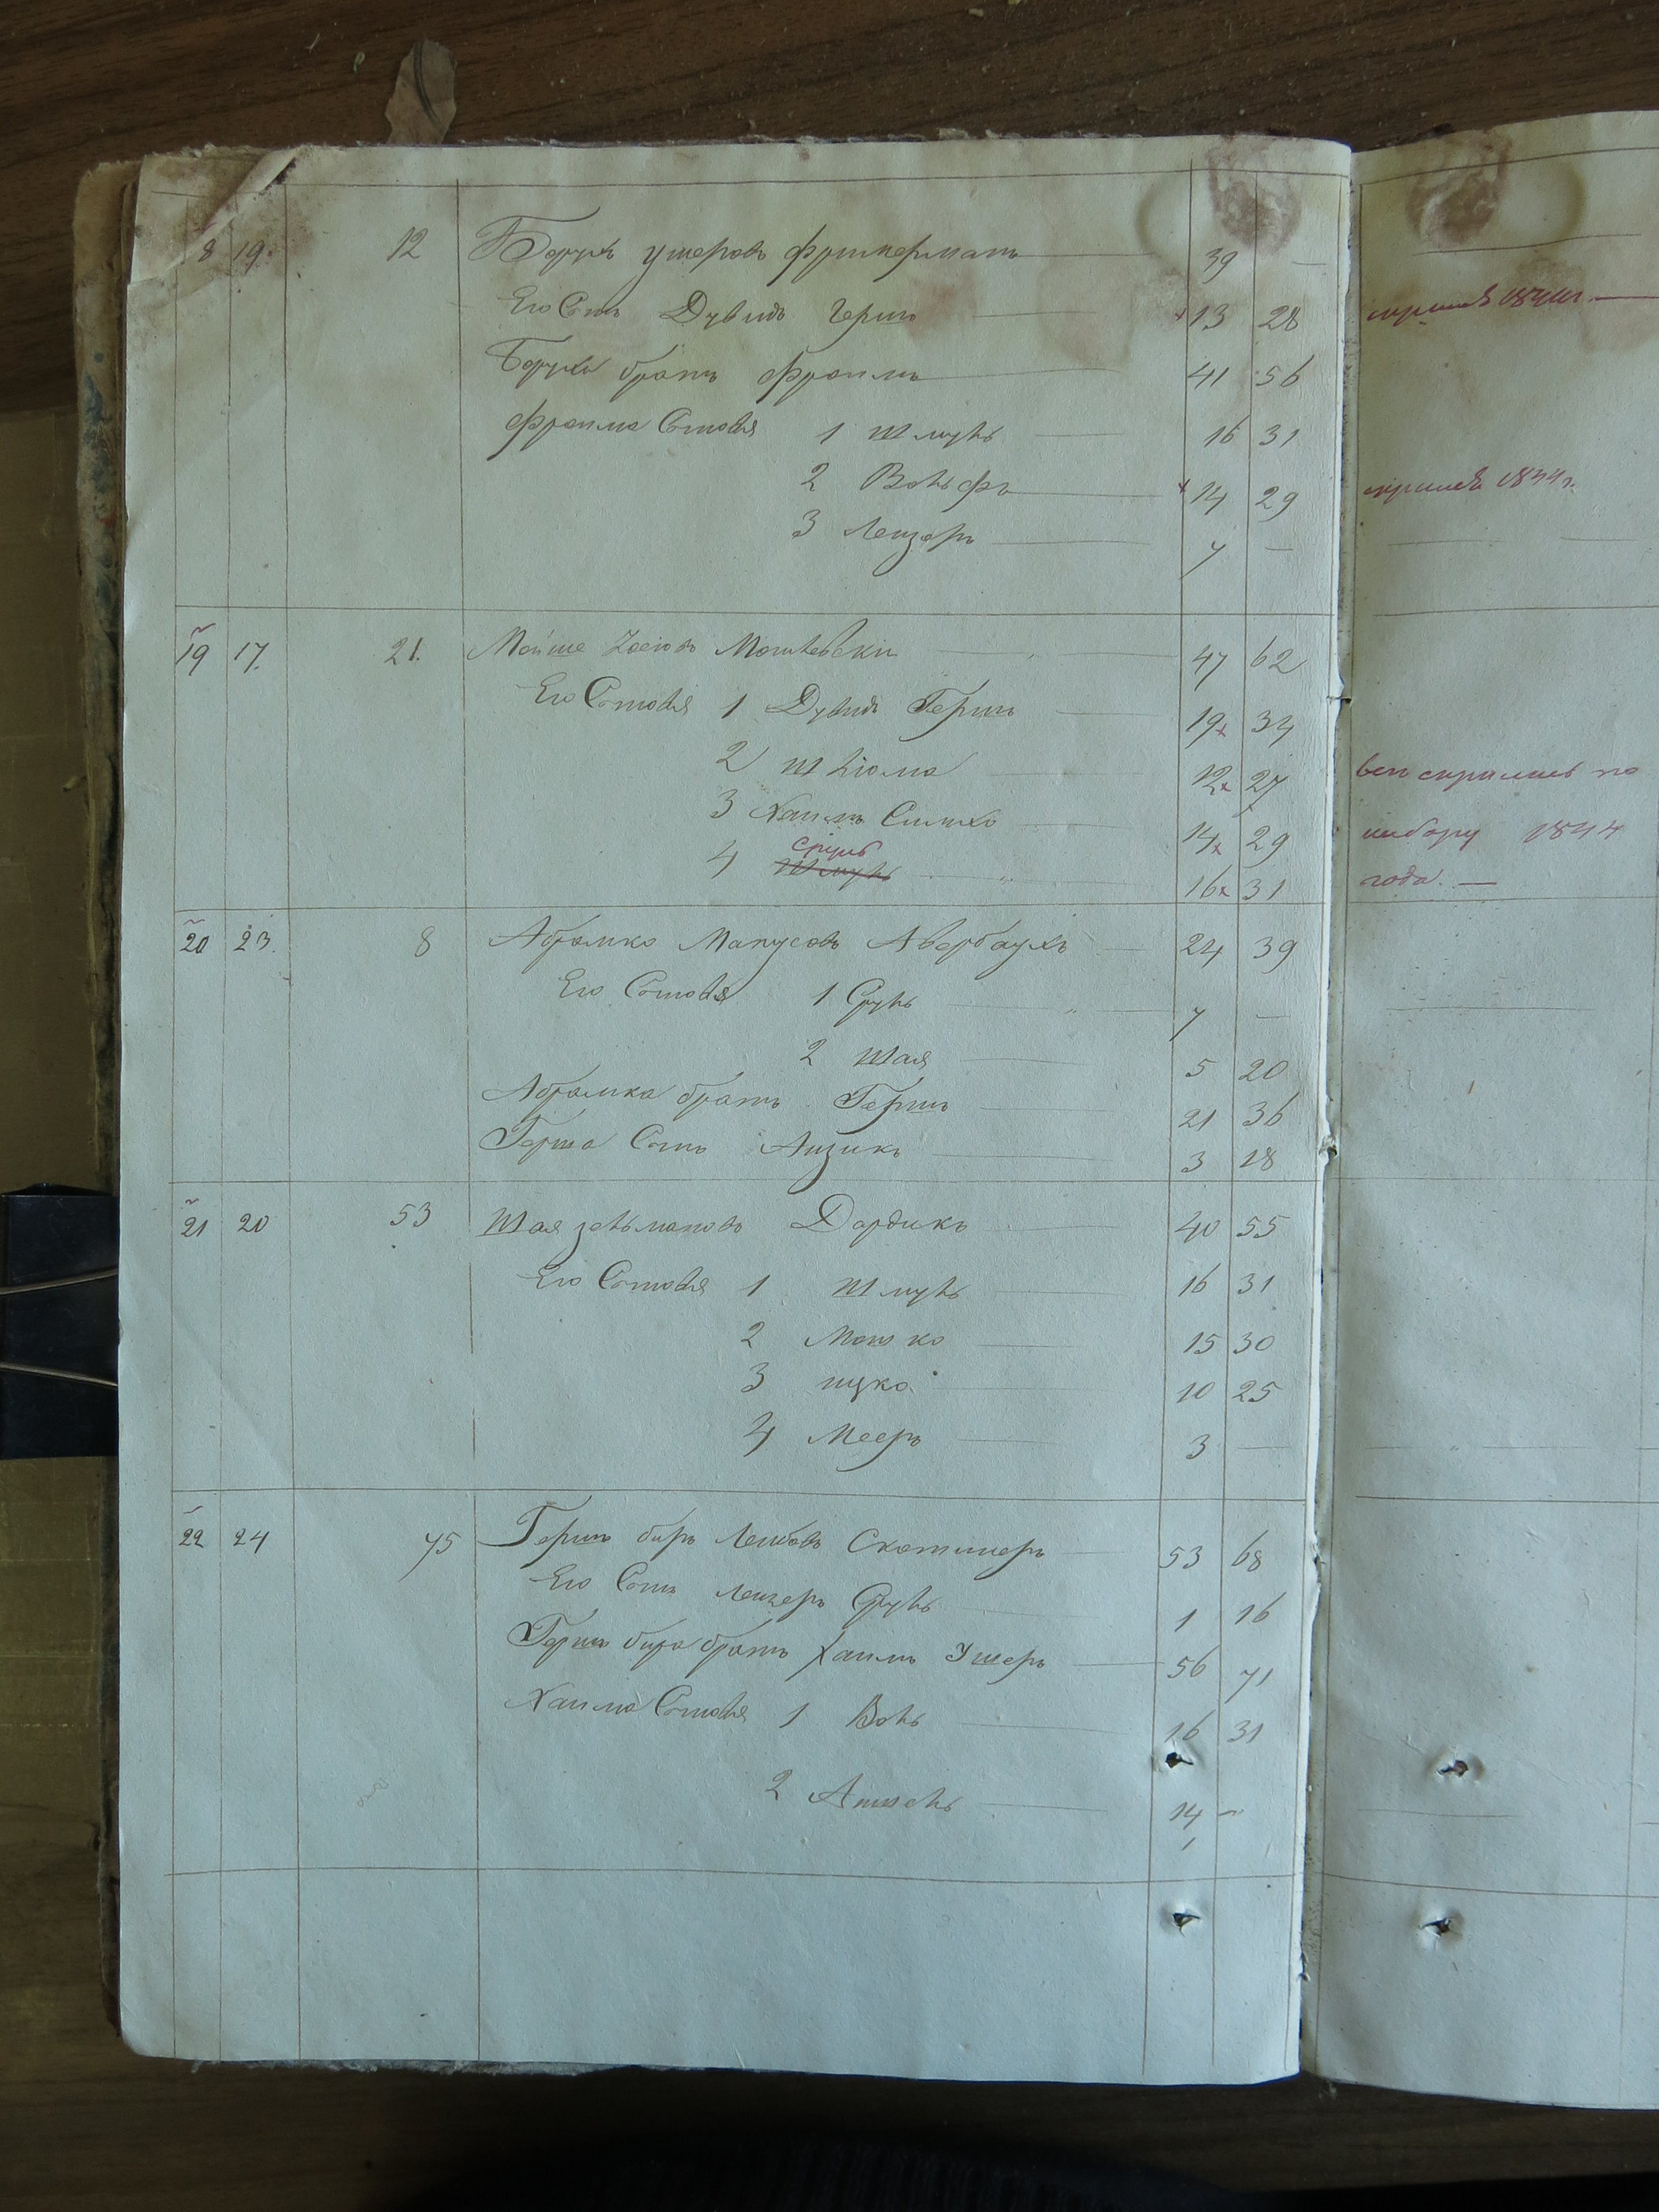 8 19. 12 Борухъ Ушеровъ Фрикерманъ 39 —
Его Сынъ Дувидъ Гершъ 13 28
Боруха братъ Фроимъ 41 56
Фроима Сыновья 1 Шмуль 16 31
2 Вольфъ 14 29 1844 г.
3 Лейзеръ 7 —
19 17. 21. Мойше Иосiовъ 47 62
Его Сыновья 1 Дувидъ Гершъ 19 34
2 Шлiома 12 27 все скрылись по
3 Хаимъ Симхо 14 29 набору 1844
Сруль
4 Шмуль 16 31 года. —
20 23. 8 Абрамко Манусовъ Авербаухъ 24 39
Его Сыновья 1 Сруль 7 —
2 Шая 5 20
Абрамка братъ Гершъ 21 36
Герша Сынъ Аизикъ 3 18
21 20 53 Шая Зельмановъ Дардикъ 40 55
Его Сыновья 1 Шмуль 16 31
2 Мошко 15 30
3 Ицко 10 25
4 Мееръ 3 —
22 24 75 Гершъ беръ Лейбовъ 53 68
Его Сынъ Лейзеръ Сруль 1 16
Гершъ бера братъ Хаимъ Ушеръ 56 71
Хаима Сыновья 1 Воль 16 31
2 Аншель 14 —